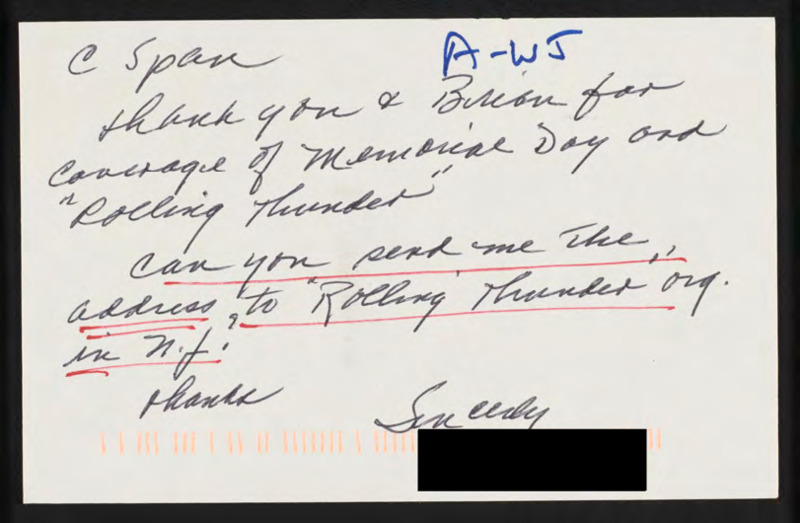 A-WJ
C Span
Thank you & Brian for
coverage of Memorial Day and
"Rolling Thunder"
Can you send me the
address to "Rolling Thunder" org.
in N.J.?
Thanks
Sincerely